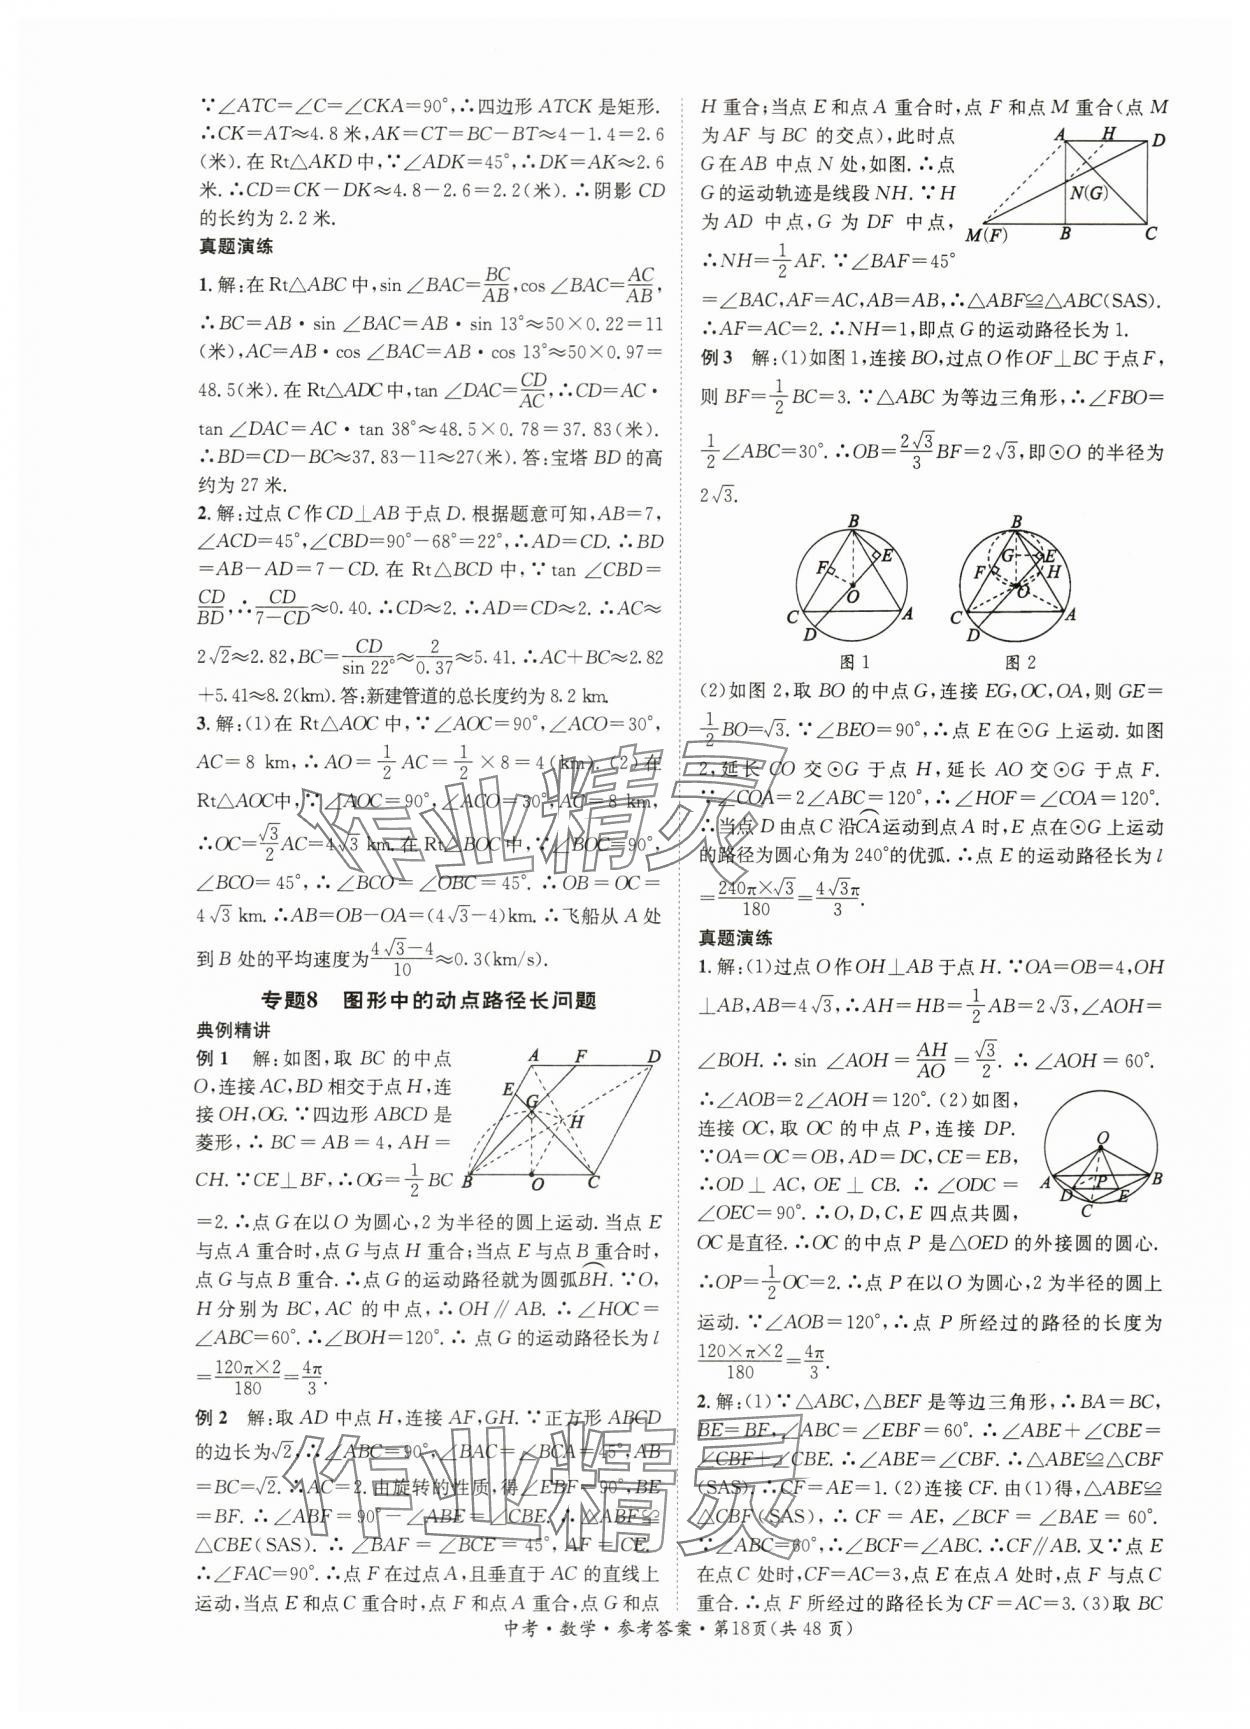 ∵∠ATC=∠C=∠CKA=90°,∴四边形 ATCK 是矩形.
∴CK=AT≈4.8米,AK=CT=BC-BT≈4-1.4=2.6
(米).在 Rt△AKD 中,∵∠ADK=45°,∴DK=AK≈2.6
米.∴CD=CK-DK≈4.8-2.6=2.2(米).∴阴影 CD
的长约为 2.2 米.
真题演练
1.解:在Rt△ABC中,sin∠BAC=BC/AB,cos∠BAC=AC/AB,
∴BC=AB·sin∠BAC=AB·sin 13°≈50×0.22=11
(米),AC=AB·cos∠BAC=AB·cos 13°≈50×0.97=
48.5(米).在 Rt△ADC 中,tan∠DAC=CD/AC,∴CD=AC·
tan∠DAC=AC·tan 38°≈48.5×0.78=37.83(米).
∴BD=CD-BC≈37.83-11≈27(米).答:宝塔 BD 的高
约为 27 米.
2.解:过点 C 作 CD⊥AB 于点 D.根据题意可知,AB=7,
∠ACD=45°,∠CBD=90°-68°=22°,∴AD=CD.∴BD
=AB-AD=7-CD.在 Rt△BCD 中,∵tan∠CBD=
CD/BD,∴CD/(7-CD)≈0.40.∴CD≈2.∴AD=CD≈2.∴AC≈
2√2≈2.82,BC=CD/sin 22°≈2/0.37≈5.41.∴AC+BC≈2.82
+5.41≈8.2(km).答:新建管道的总长度约为 8.2 km.
3.解:(1)在 Rt△AOC 中,∵∠AOC=90°,∠ACO=30°,
AC=8 km,∴AO=1/2AC=1/2×8=4(km).(2)在
Rt△AOC中,∵∠AOC=90°,∠ACO=30°,AC=8 km,
∴OC=√3/2AC=4√3 km.在 Rt△BOC 中,∵∠BOC=90°,
∠BCO=45°,∴∠BCO=∠OBC=45°.∴OB=OC=
4√3 km.∴AB=OB-OA=(4√3-4)km.∴飞船从 A 处
到 B 处的平均速度为(4√3-4)/10≈0.3(km/s).
专题8 图形中的动点路径长问题
典例精讲
例1 解:如图,取 BC 的中点
O,连接AC,BD 相交于点 H,连
接 OH,OG.∵四边形 ABCD 是
菱形,∴BC=AB=4,AH=
CH.∵CE⊥BF,∴OG=1/2BC
A F D E G H B O C
=2.∴点 G 在以 O 为圆心,2 为半径的圆上运动.当点 E
与点 A 重合时,点 G 与点 H 重合;当点 E 与点 B 重合时,
点 G 与点 B 重合.∴点 G 的运动路径就为圆弧BH.∵O,
H 分别为 BC,AC 的中点,∴OH∥AB.∴∠HOC=
∠ABC=60°.∴∠BOH=120°.∴点 G 的运动路径长为 l
=120π×2/180=4π/3.
例2 解:取 AD 中点 H,连接 AF,GH.∵正方形 ABCD
的边长为√2,∴∠ABC=90°,∠BAC=∠BCA=45°,AB
=BC=√2.∴AC=2.由旋转的性质,得∠EBF=90°,BE
=BF.∴∠ABF=90°-∠ABE=∠CBE.∴△ABF≌
△CBE(SAS).∴∠BAF=∠BCE=45°,AF=CE.
∴∠FAC=90°.∴点 F 在过点 A,且垂直于 AC 的直线上
运动,当点 E 和点 C 重合时,点 F 和点 A 重合,点 G 和点
H 重合;当点 E 和点 A 重合时,点 F 和点 M 重合(点 M
为 AF 与 BC 的交点),此时点
G 在 AB 中点 N 处,如图.∴点
G 的运动轨迹是线段 NH.∵H
为 AD 中点,G 为 DF 中点,
∴NH=1/2AF.∵∠BAF=45°
A H D N(G) M(F) B C
=∠BAC,AF=AC,AB=AB,∴△ABF≌△ABC(SAS).
∴AF=AC=2.∴NH=1,即点 G 的运动路径长为 1.
例3 解:(1)如图1,连接 BO,过点 O 作 OF⊥BC 于点 F,
则 BF=1/2BC=3.∵△ABC 为等边三角形,∴∠FBO=
1/2∠ABC=30°.∴OB=2√3/3BF=2√3,即⊙O 的半径为
2√3.
B E F O C A D
图1
B G E F H O C A D
图2
(2)如图 2,取 BO 的中点 G,连接 EG,OC,OA,则 GE=
1/2BO=√3.∵∠BEO=90°,∴点 E 在⊙G 上运动.如图
2,延长 CO 交⊙G 于点 H,延长 AO 交⊙G 于点 F.
∵∠COA=2∠ABC=120°,∴∠HOF=∠COA=120°.
∴当点 D 由点 C 沿CA运动到点 A 时,E 点在⊙G 上运动
的路径为圆心角为 240°的优弧.∴点 E 的运动路径长为 l
=240π×√3/180=4√3π/3.
真题演练
1.解:(1)过点 O 作 OH⊥AB 于点 H.∵OA=OB=4,OH
⊥AB,AB=4√3,∴AH=HB=1/2AB=2√3,∠AOH=
∠BOH.∴sin∠AOH=AH/AO=√3/2.∴∠AOH=60°.
∴∠AOB=2∠AOH=120°.(2)如图,
连接 OC,取 OC 的中点 P,连接 DP.
∵OA=OC=OB,AD=DC,CE=EB,
∴OD⊥AC,OE⊥CB.∴∠ODC=
∠OEC=90°.∴O,D,C,E 四点共圆,
O A B D P E C
OC 是直径.∴OC 的中点 P 是△OED 的外接圆的圆心.
∴OP=1/2OC=2.∴点 P 在以 O 为圆心,2 为半径的圆上
运动.∵∠AOB=120°,∴点 P 所经过的路径的长度为
120×π×2/180=4π/3.
2.解:(1)∵△ABC,△BEF 是等边三角形,∴BA=BC,
BE=BF,∠ABC=∠EBF=60°.∴∠ABE+∠CBE=
∠CBF+∠CBE.∴∠ABE=∠CBF.∴△ABE≌△CBF
(SAS).∴CF=AE=1.(2)连接 CF.由(1)得,△ABE≌
△CBF(SAS),∴CF=AE,∠BCF=∠BAE=60°.
∵∠ABC=60°,∴∠BCF=∠ABC.∴CF∥AB.又∵点 E
在点 C 处时,CF=AC=3,点 E 在点 A 处时,点 F 与点 C
重合.∴点 F 所经过的路径长为 CF=AC=3.(3)取 BC
中考·数学·参考答案·第18页(共 48 页)
作业精灵
作业精灵